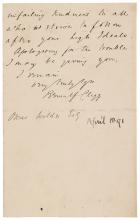 unfailing kindness to all
who is strove to follow
after your high Ideals.
Apologising for the trouble
I may be giving you,
I remain
Very truly yrs
Bernulf Clegg
Oscar Wilde Esq
April 1891